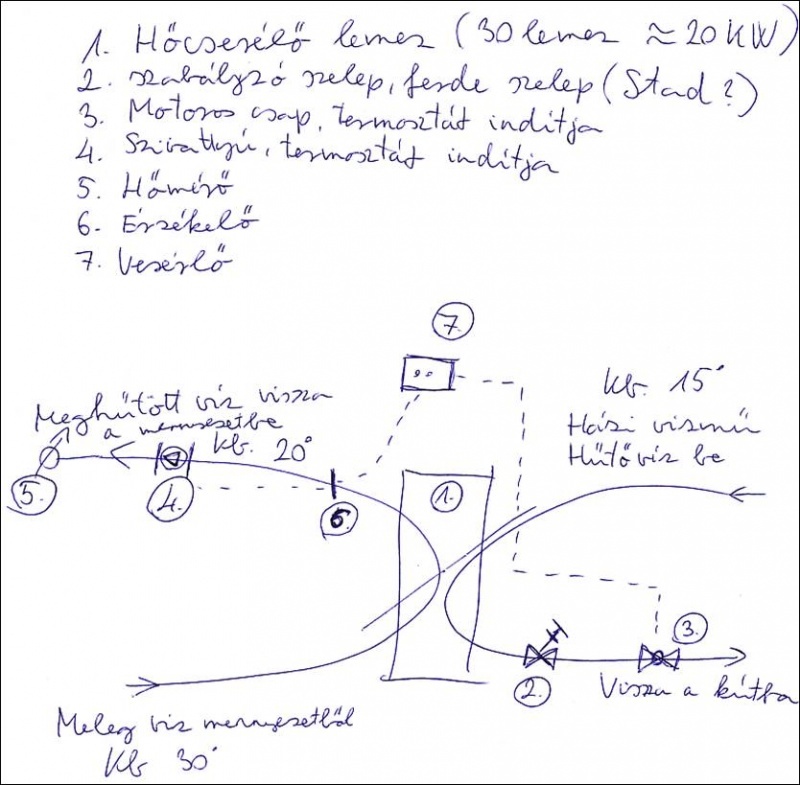 1. Hőcserélő lemez (30 lemez ≈ 20 KW)
2. szabályzó szelep, ferde szelep (Stad?)
3. Motoros csap, termosztát indítja
4. Szivattyú, termosztát indítja
5. Hőmérő
6. Érzékelő
7. Vezérlő
7.
Kb. 15°
Házi vízmű
Hűtővíz be
Meghűtött víz vissza
a mennyezetbe
Kb. 20°
5.
4.
6.
1.
3.
2.
Vissza a kútba
Meleg víz mennyezetből
Kb 30°